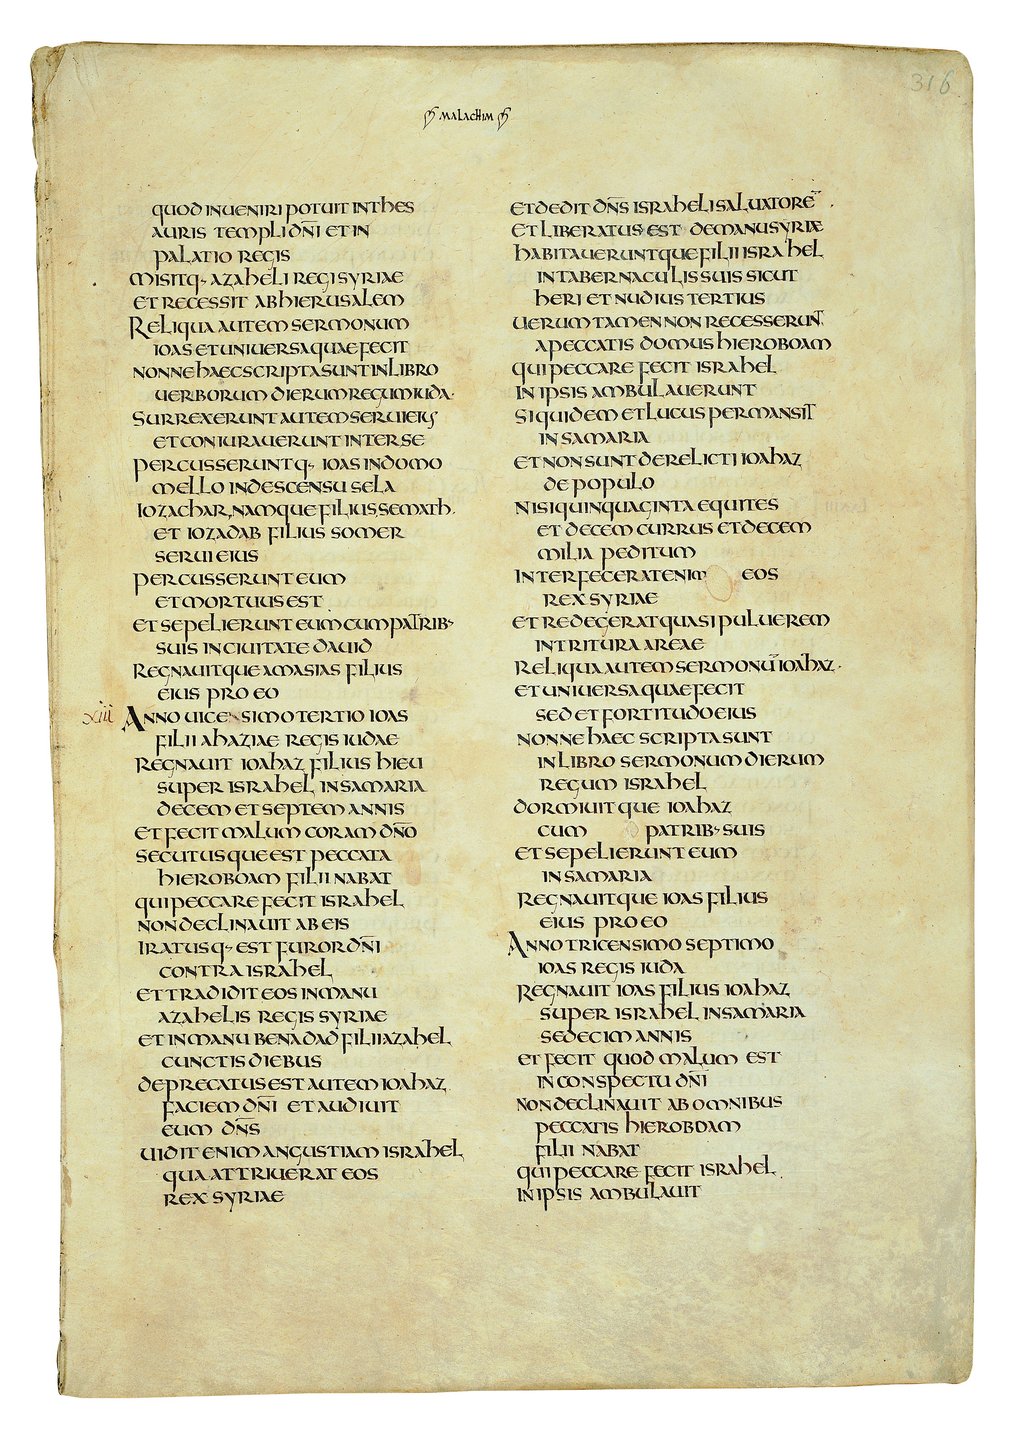 316
MALACHIM
QUOD INUENIRI POTUIT IN THES
AURIS TEMPLI DN̄I ET IN
PALATIO REGIS
MISITQ· AZAHELI REGI SYRIAE
ET RECESSIT AB HIERUSALEM
RELIQUA AUTEM SERMONUM
IOAS ET UNIUERSA QUAE FECIT
NONNE HAEC SCRIPTA SUNT IN LIBRO
UERBORUM DIERUM REGUM IUDA·
SURREXERUNT AUTEM SERUI EIUS
ET CONIURAUERUNT INTER SE
PERCUSSERUNTQ· IOAS IN DOMO
MELLO IN DESCENSU SELA
IOZACHAR, NAMQUE FILIUS, SEMATH·
ET IOZADAB FILIUS SOMER
SERUI EIUS
PERCUSSERUNT EUM
ET MORTUUS EST
ET SEPELIERUNT EUM CUM PATRIB·
SUIS IN CIUITATE DAUID
REGNAUITQUE AMASIAS FILIUS
EIUS PRO EO
xiii ANNO UICESIMO TERTIO IOAS
FILII AHAZIAE REGIS IUDAE
REGNAUIT IOAHAZ FILIUS HIEU
SUPER ISRAHEL IN SAMARIA
DECEM ET SEPTEM ANNIS
ET FECIT MALUM CORAM DN̄O
SECUTUSQUE EST PECCATA
HIEROBOAM FILII NABAT
QUI PECCARE FECIT ISRAHEL
NON DECLINAUIT AB EIS
IRATUSQ· EST FUROR DN̄I
CONTRA ISRAHEL
ET TRADIDIT EOS IN MANU
AZAHELIS REGIS SYRIAE
ET IN MANU BENADAD FILII AZAHEL
CUNCTIS DIEBUS
DEPRECATUS EST AUTEM IOAHAZ
FACIEM DN̄I ET AUDIUIT
EUM DN̄S
UIDIT ENIM ANGUSTIAM ISRAHEL
QUA ATTRIUERAT EOS
REX SYRIAE
ET DEDIT DN̄S ISRAHELI SALUATORĒ
ET LIBERATUS EST DE MANU SYRIAE
HABITAUERUNTQUE FILII ISRAHEL
IN TABERNACULIS SUIS SICUT
HERI ET NUDIUS TERTIUS
UERUM TAMEN NON RECESSERUNT
A PECCATIS DOMUS HIEROBOAM
QUI PECCARE FECIT ISRAHEL
IN IPSIS AMBULAUERUNT
SIQUIDEM ET LUCUS PERMANSIT
IN SAMARIA
ET NON SUNT DERELICTI IOAHAZ
DE POPULO
NISI QUINQUAGINTA EQUITES
ET DECEM CURRUS ET DECEM
MILIA PEDITUM
INTERFECERAT ENIM EOS
REX SYRIAE
ET REDEGERAT QUASI PULUEREM
IN TRITURA AREAE
RELIQUA AUTEM SERMONŪ IOAHAZ·
ET UNIUERSA QUAE FECIT
SED ET FORTITUDO EIUS
NONNE HAEC SCRIPTA SUNT
IN LIBRO SERMONUM DIERUM
REGUM ISRAHEL
DORMIUITQUE IOAHAZ
CUM PATRIB· SUIS
ET SEPELIERUNT EUM
IN SAMARIA
REGNAUITQUE IOAS FILIUS
EIUS PRO EO
ANNO TRICENSIMO SEPTIMO
IOAS REGIS IUDA
REGNAUIT IOAS FILIUS IOAHAZ
SUPER ISRAHEL IN SAMARIA
SEDECIM ANNIS
ET FECIT QUOD MALUM EST
IN CONSPECTU DN̄I
NON DECLINAUIT AB OMNIBUS
PECCATIS HIEROBOAM
FILII NABAT
QUI PECCARE FECIT ISRAHEL
IN IPSIS AMBULAUIT